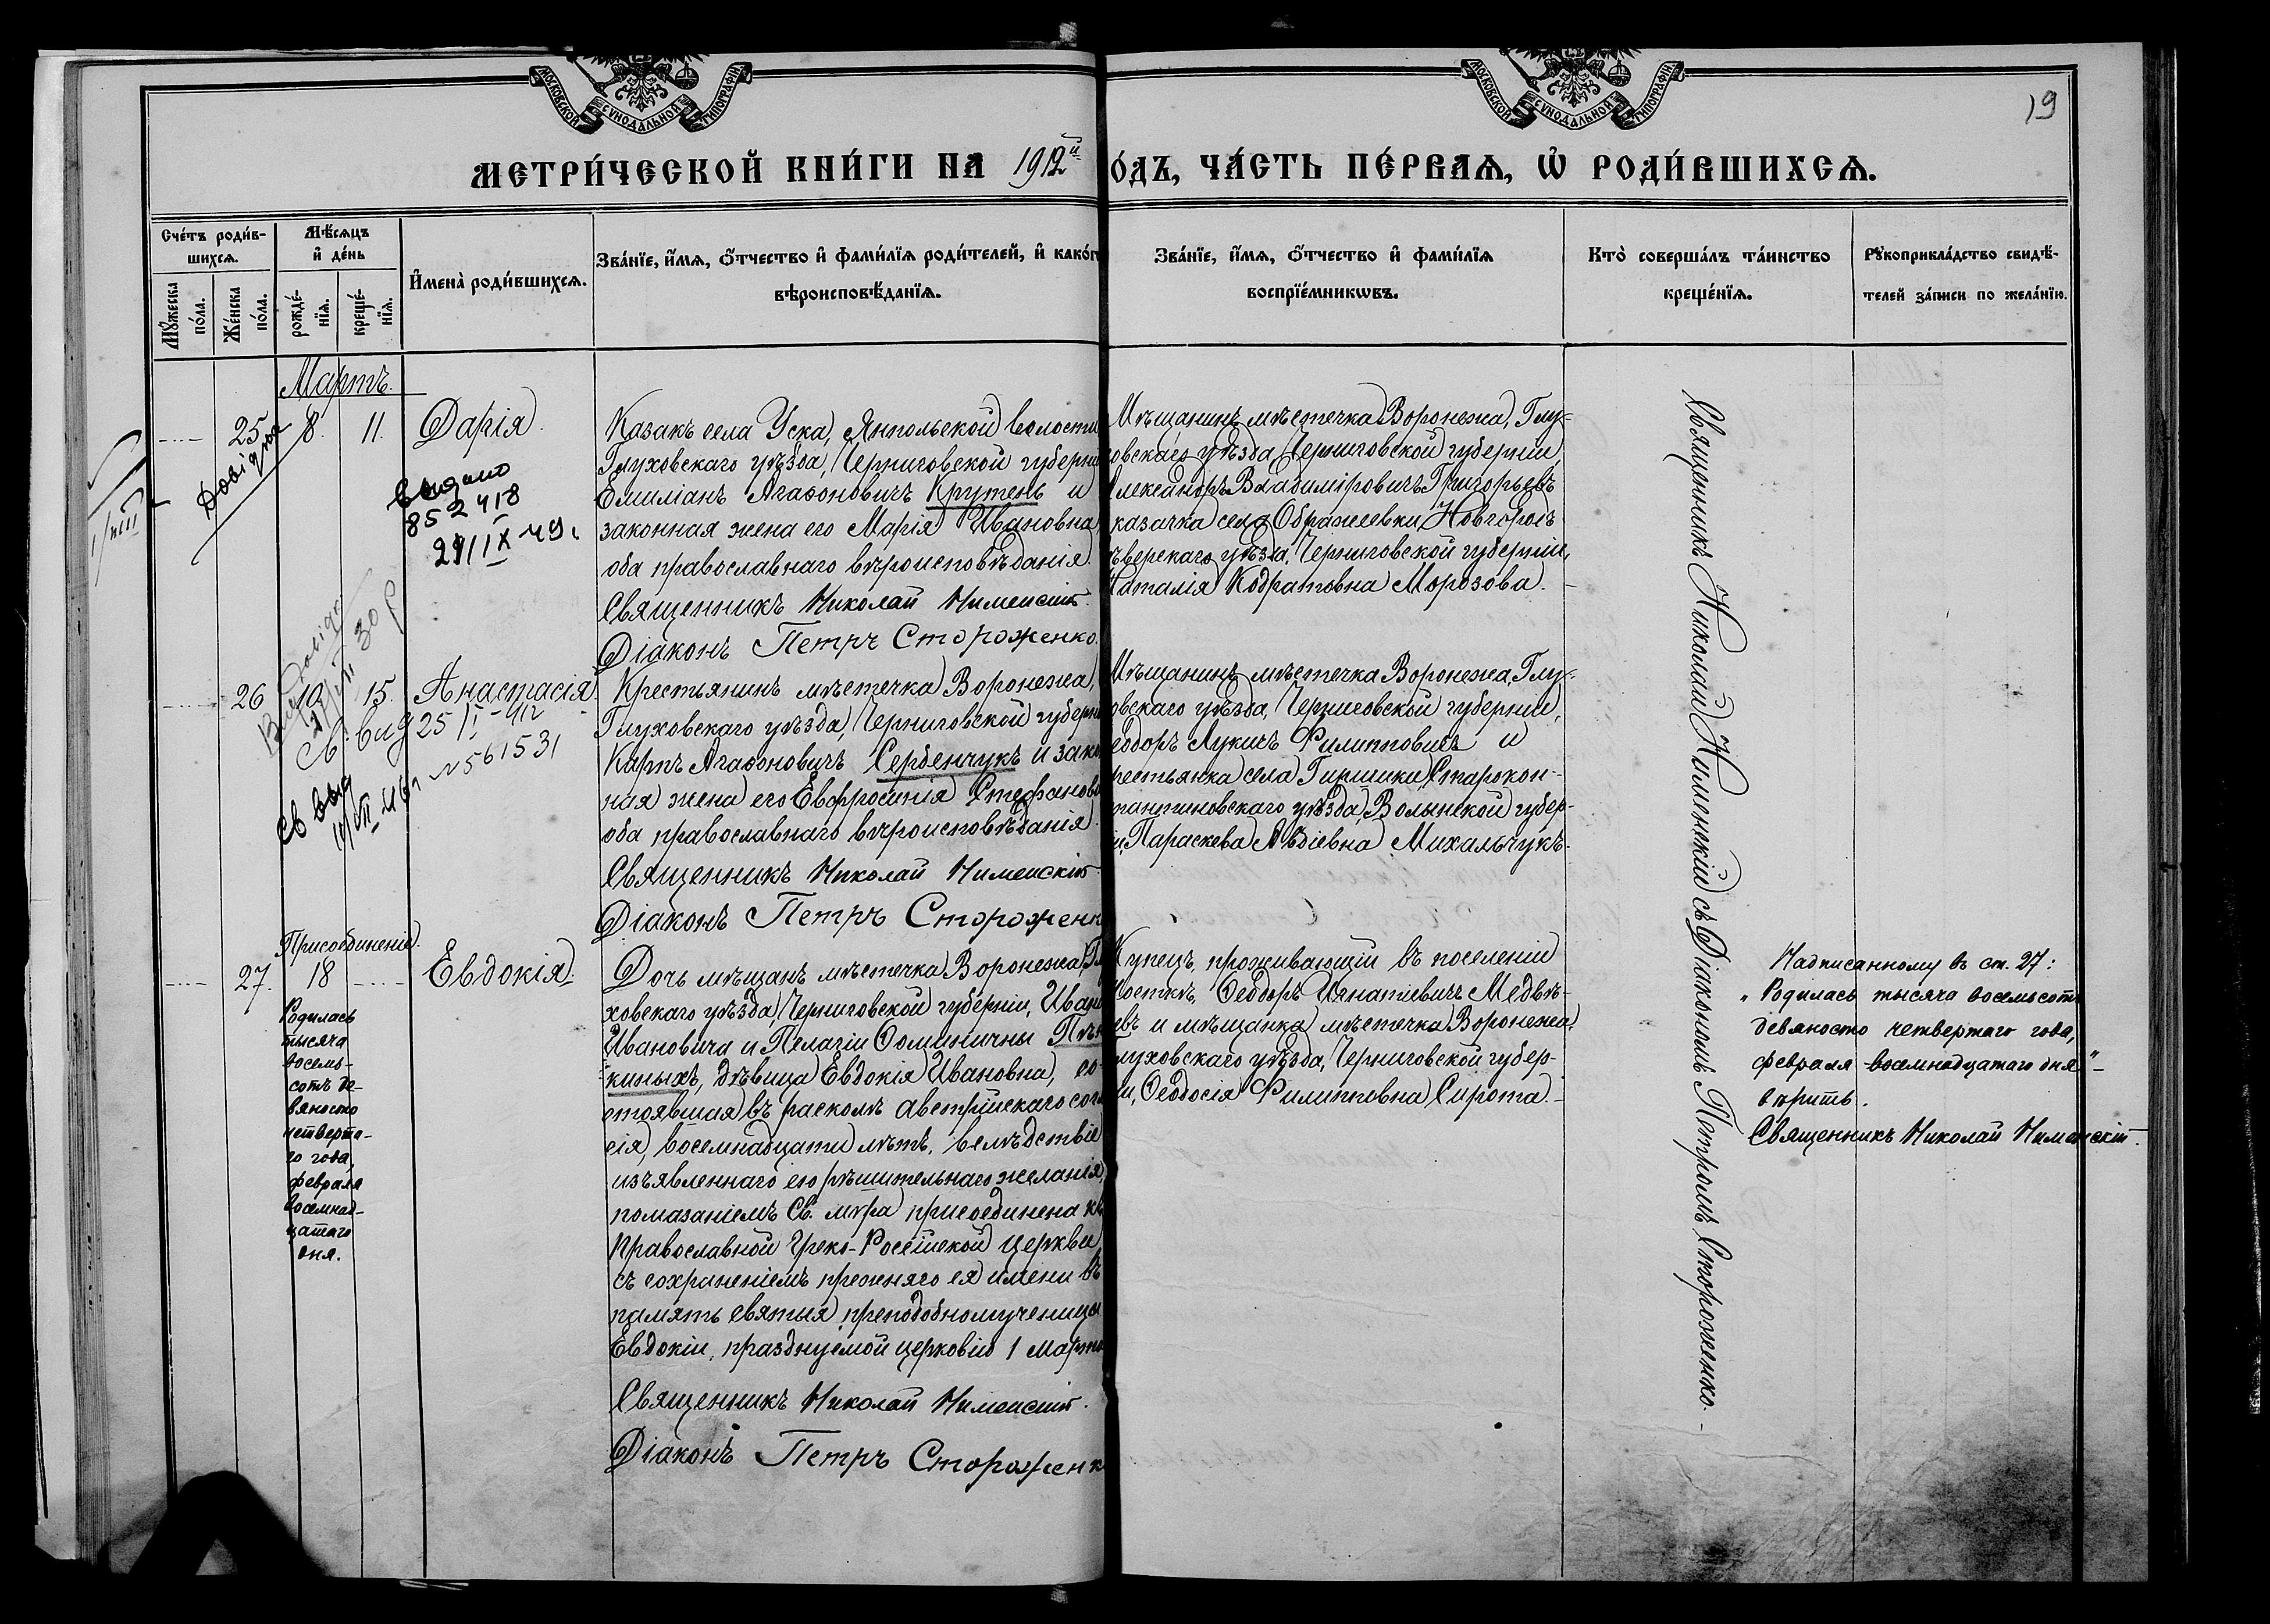 МОСКОВСКОЙ СѴНОДАЛЬНОЙ ТИПОГРАФІИ
МОСКОВСКОЙ СѴНОДАЛЬНОЙ ТИПОГРАФІИ
19
МЕТРИ́ЧЕСКОЙ КНИ́ГИ НА 1912й
ОДЪ, ЧА́СТЬ ПЕ́РВАѦ, Ѡ РОДИ́ВШИХСѦ.
Сче́тъ роди́в-
шихсѧ.
Мꙋ́жеска по́ла.
Же́нска по́ла.
Мѣ́сѧцъ
и҆ де́нь
рожде́-
нїѧ.
креще́-
нїѧ.
И҆мена̀ роди́вшихсѧ.
Зва́нїе, и҆́мѧ, ѻ҆́тчество и҆ фами́лїѧ роди́телей, и҆ како́г
вѣроисповѣ́данїѧ.
Зва́нїе, и҆́мѧ, ѻ҆́тчество и҆ фами́лїѧ
воспрїе́мникѡвъ.
Кто̀ соверша́лъ та́инство
креще́нїѧ.
Рꙋкоприкла́дство свидѣ́-
телей за́писи по жела́нїю.
Мартъ.
25
8.
11.
Дарія.
Довідка
видано
852418
IX-49.
Казакъ села Уска, Янпольской волости
Глуховскаго уѣзда, Черниговской губерн
Емиліанъ Агаѳоновичъ Крутень и
законная жена его Марія Ивановна
оба православнаго вѣроисповѣданія.
Священникъ Николай Нименскій.
Діаконъ Петръ Стороженко.
Мѣщанинъ мѣстечка Воронежа, Глу-
овскаго уѣзда, Черниговской губерніи,
лександръ Владиміровичъ Григорьевъ
казачка села Ображеевки, Новгород
ѣверскаго уѣзда, Черниговской губерніи,
аталія Кодратовна Морозова.
26
15.
Анастасія
30 р
св. вид 25 I-42
№561531
Св вид
Крестьянинъ мѣстечка Воронежа,
Глуховскаго уѣзда, Черниговской губерн
Карпъ Агаѳоновичъ Сербенчукъ и зако
ная жена его Евфросинія Стефановн
оба православнаго вѣроисповѣданія.
Священникъ Николай Нименскій
Діаконъ Петръ Стороженк
Мѣщанинъ мѣстечка Воронежа, Глу-
овскаго уѣзда, Черниговской губерніи,
еодоръ Лукичъ Филипповичъ и
рестьянка села Старокон-
тантиновскаго уѣзда, Волынской губер-
и, Параскева Авдіевна Михальчукъ.
Присоединеніе.
27.
18
Евдокія.
Родилась
тысяча
восемь-
сотъ де-
вяносто
четверта-
го года,
февраля
восемнад-
цатаго
дня.
Дочь мѣщанъ мѣстечка Воронежа, Гл
ховскаго уѣзда, Черниговской губерніи, Иван
Ивановича и Пелагіи Ѳоминичны Пѣн
киныхъ, дѣвица Евдокія Ивановна, со-
стоявшая въ расколѣ австрійскаго согл
сія, восемнадцати лѣтъ, вслѣдствіе
изъявленнаго ею рѣшительнаго желанія,
помазаніемъ Св. мѵра присоединена къ
Православной Греко-Россійской церкви
съ сохраненіемъ прежняго ея имени въ
память святыя преподобномученицы
Евдокіи, празднуемой церковію 1 Марта
Священникъ Николай Нименскій.
Діаконъ Петръ Стороженк
Купецъ, проживающій въ поселеніи
Ѳеодоръ Игнатіевичъ Медвѣ-
евъ и мѣщанка мѣстечка Воронежа,
луховскаго уѣзда, Черниговской губер-
іи, Ѳеодосія Филипповна Сирота.
Священникъ Николай Нименскій съ Діакономъ Петромъ Стороженко.
Надписанному въ ст. 27:
"Родилась тысяча восемьсотъ
девяносто четвертаго года,
февраля восемнадцатаго дня"-
вѣрить.
Священникъ Николай Нименскій.